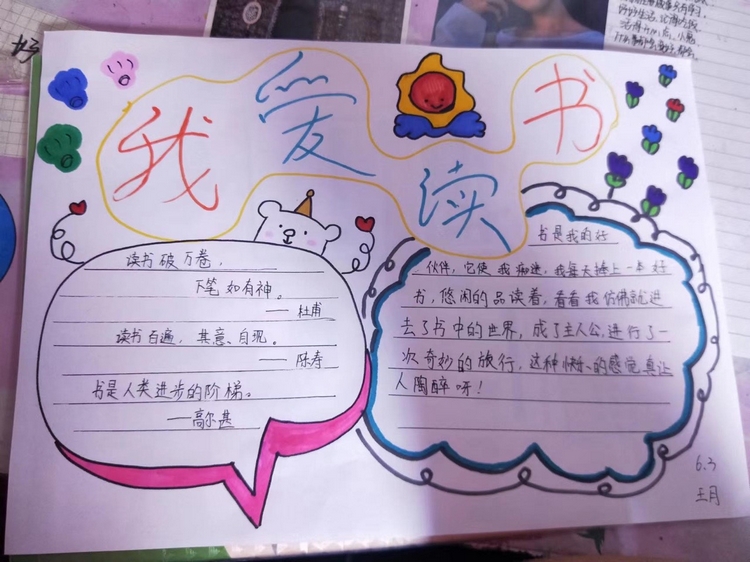 我爱读书
读书破万卷，
下笔如有神。
——杜甫
读书百遍，其意、自现。
——陈寿
书是人类进步的阶梯。
——高尔基
书是我的好
伙伴，它使我痴迷，我每天捧上一本好
书，悠闲的品读着，看着我仿佛就进
去了书中的世界，成了主人公，进行了一
次奇妙的旅行，这种快乐的感觉真让
人陶醉呀！
6.3
王月